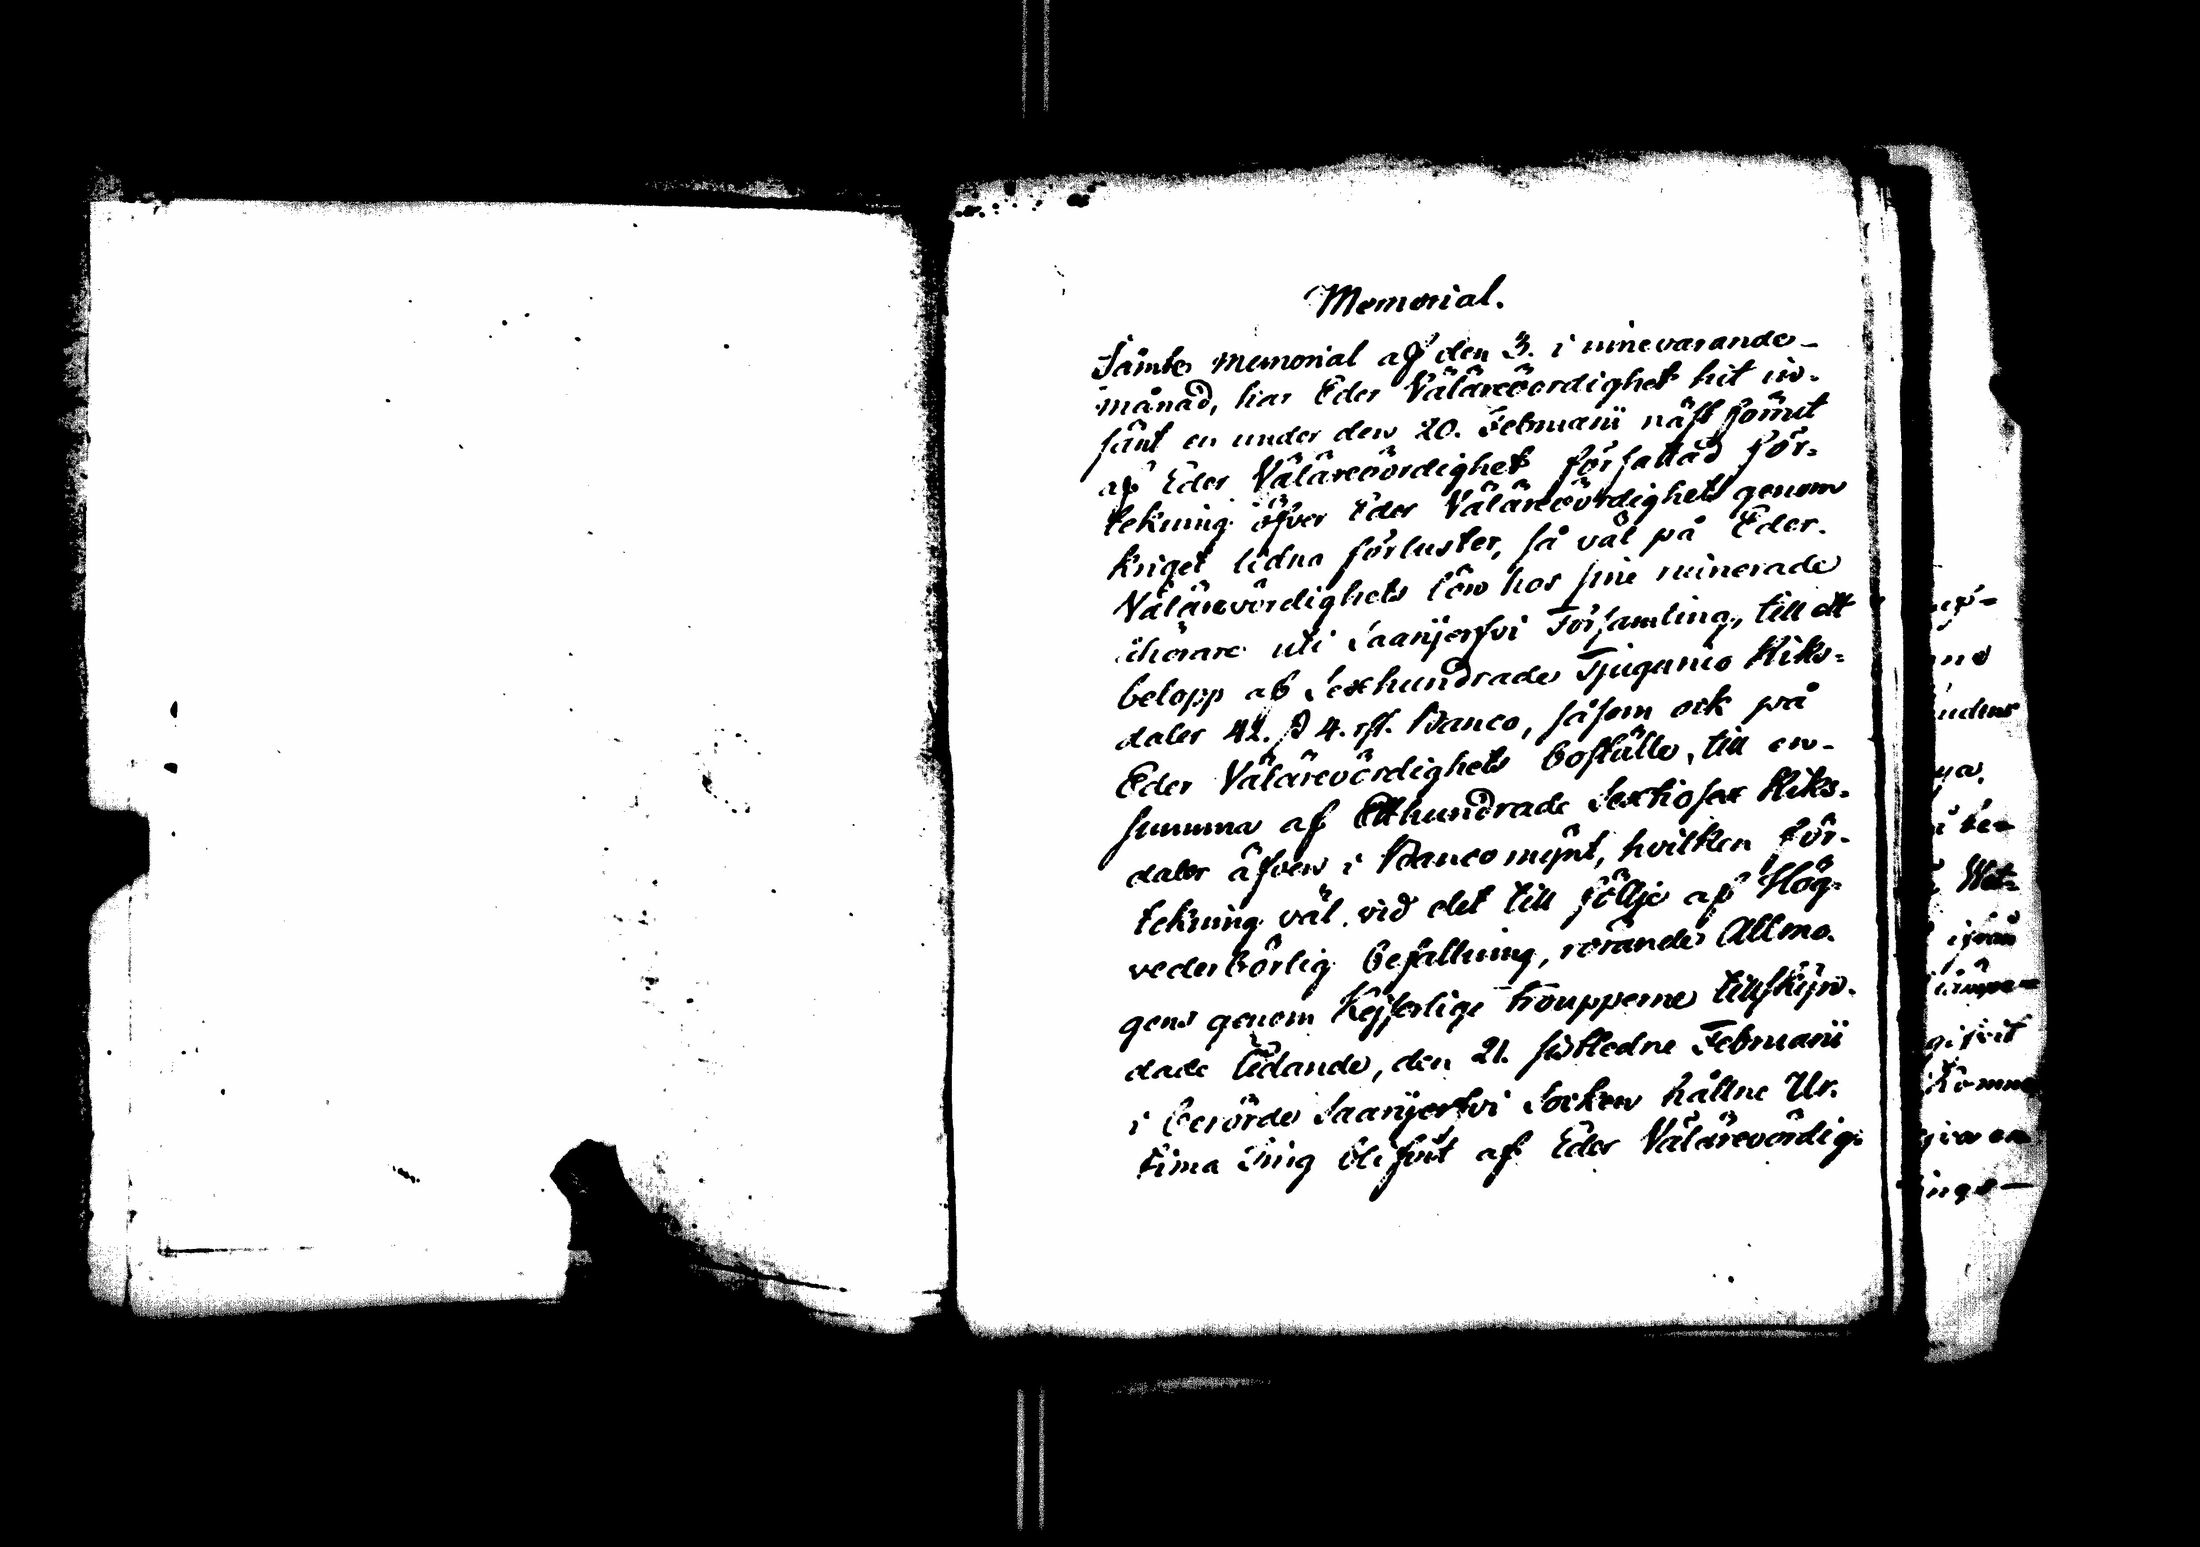 Memorial.
Jämte memorial af den 3. i innevarande
månad, har Eder Välärevördighet hit in-
sänt en under den 20. Februarii näst förut
af Eder Välärevördighet författad för-
tekning öfver Eder Välärevördighets genom
kriget lidna förluster, så väl på Eder
Välärevördighets lön hos sine ruinerade
åhörare uti Saarijerfvi Församling, till ett
belopp af Sexhundrade Tjugunio Riks-
daler 42. ß 4. rst. Banco, såsom ock på
Eder Välärevördighets boställe, till en
summa af Etthundrade Sextiosex Riks-
daler äfven i Banco mynt, hvilken för-
tekning väl vid det till följe af Hög-
vederbörlig befallning, rörande Allmo-
gens genom Kejserlige Troupperne tillskyn-
dade lidande, den 21. sistledne Februarii
i berörde Saarijerfvi Socken hållne Ur-
tima Ting blifvit af Eder Välärevördig-
no
udens
ya.
te-
Wet-
ifrån
gifvit
Komma
inge